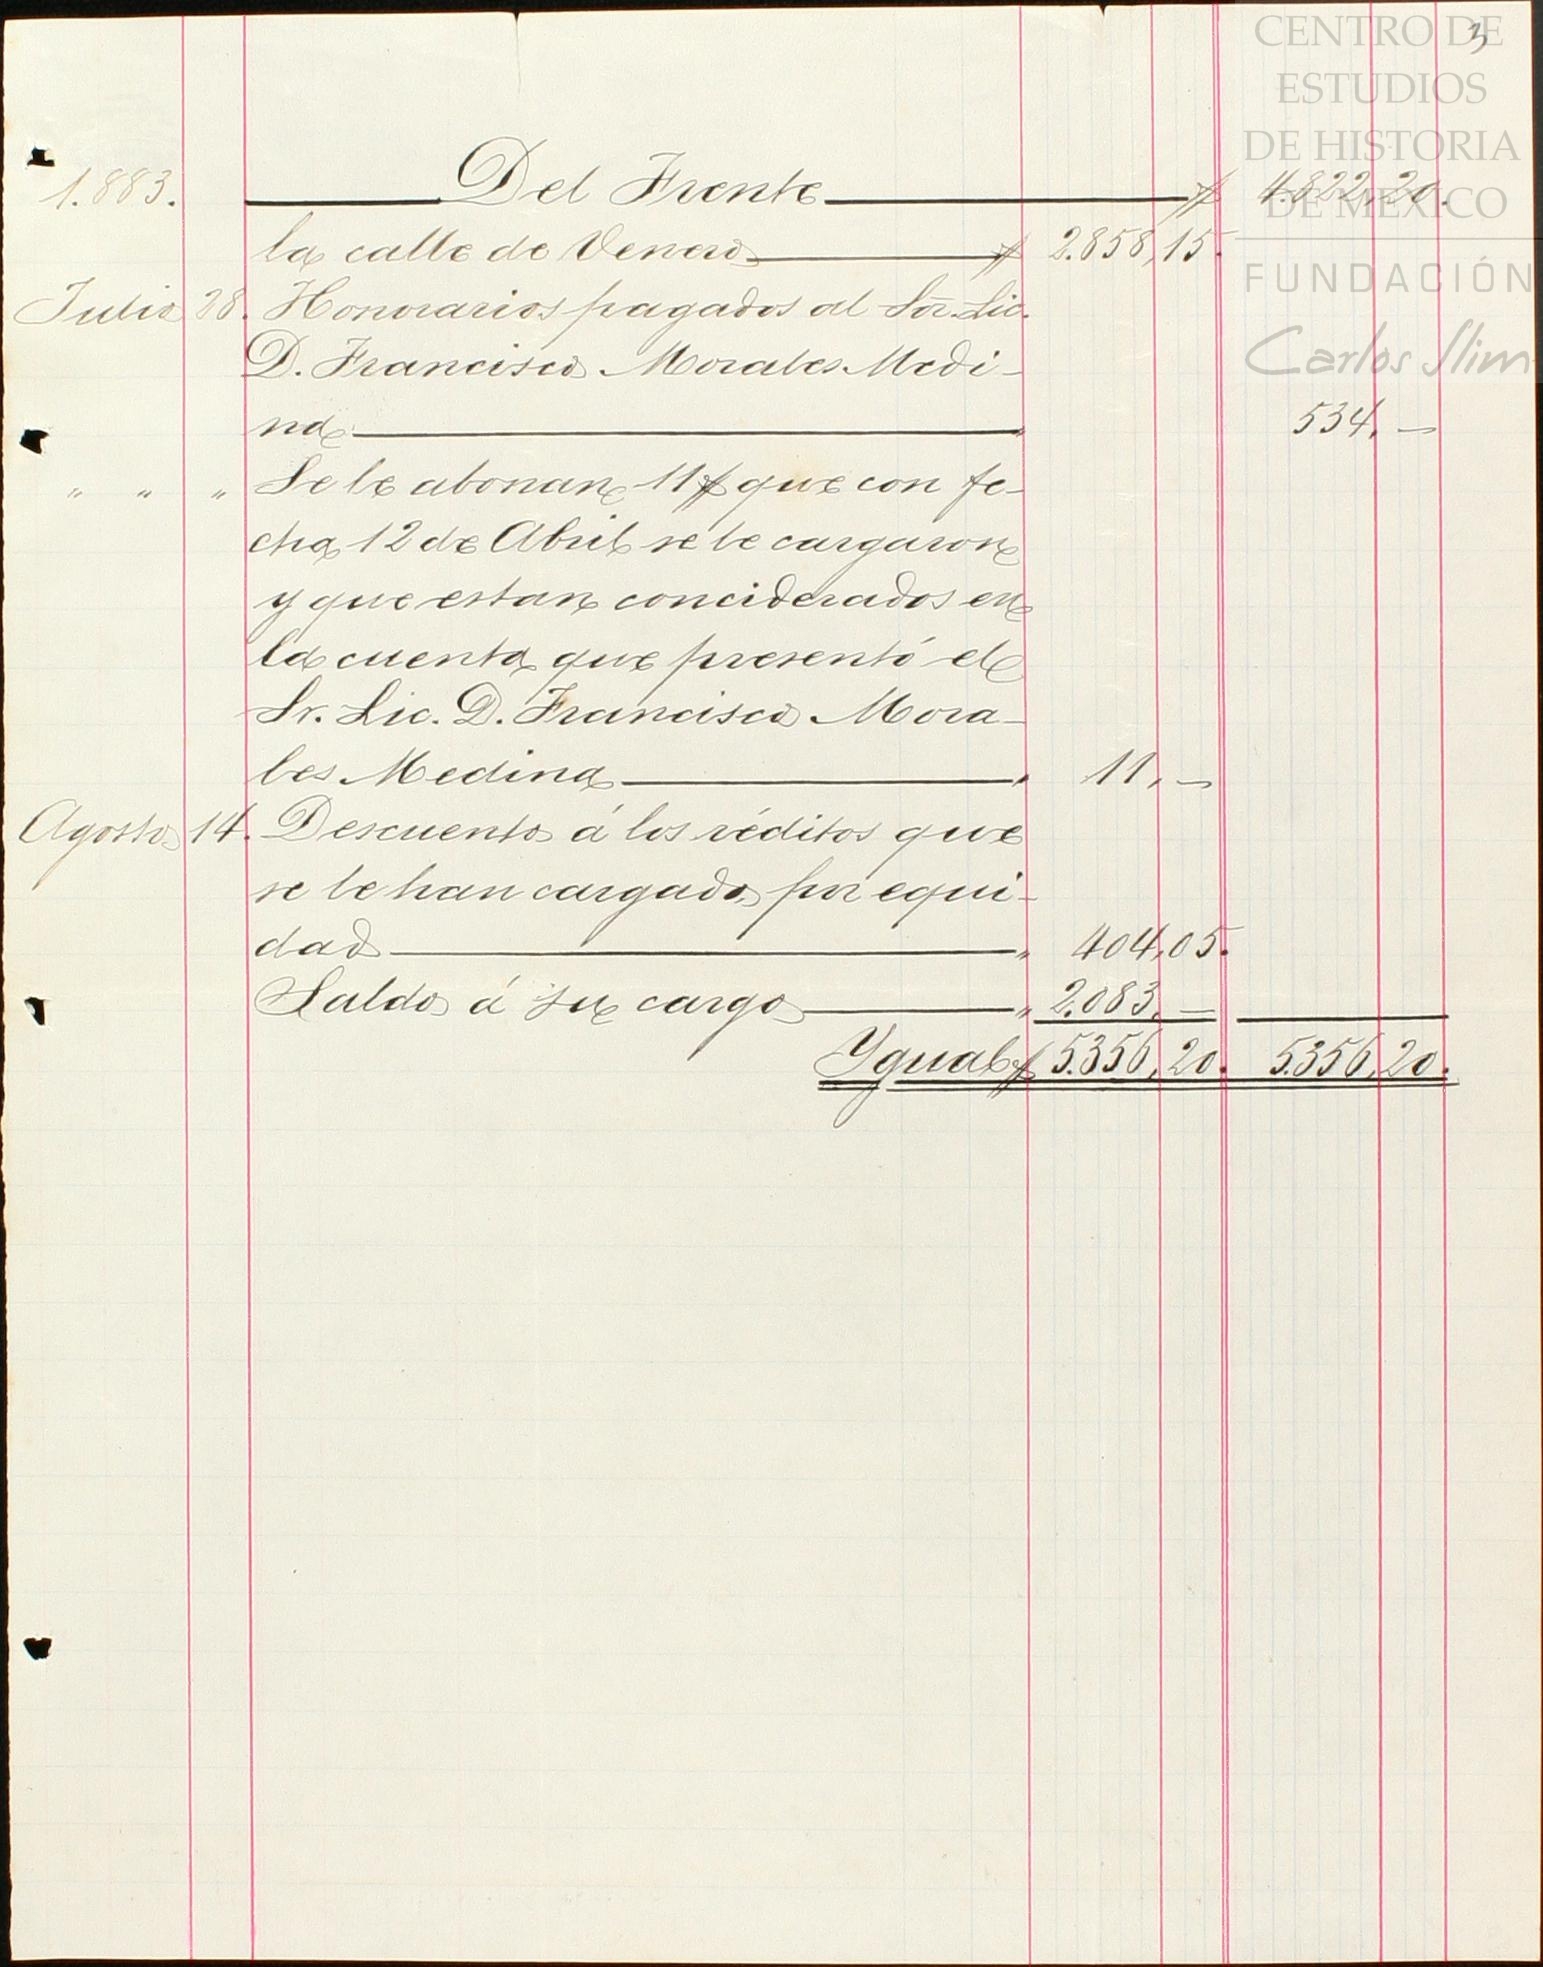 3
CENTRO DE
ESTUDIOS
DE HISTORIA
DE MÉXICO
FUNDACIÓN
Carlos Slim
1.883. Del Frente $ 4.822,20.
la calle de Venero $ 2.858,15.
Julio 28. Honorarios pagados al Sor. Lic.
D. Francisco Morales Medi-
na 534,—
" " " Se le abonan 11$ que con fe-
cha 12 de Abril se le cargaron
y que estan conciderados en
la cuenta que presentó el
Sr. Lic. D. Francisco Mora-
les Medina " 11,—
Agosto 14. Descuento á los réditos que
se le han cargado, por equi-
dad " 404,05.
Saldo á su cargo " 2.083,—
Ygual $ 5.356,20. 5.356,20.